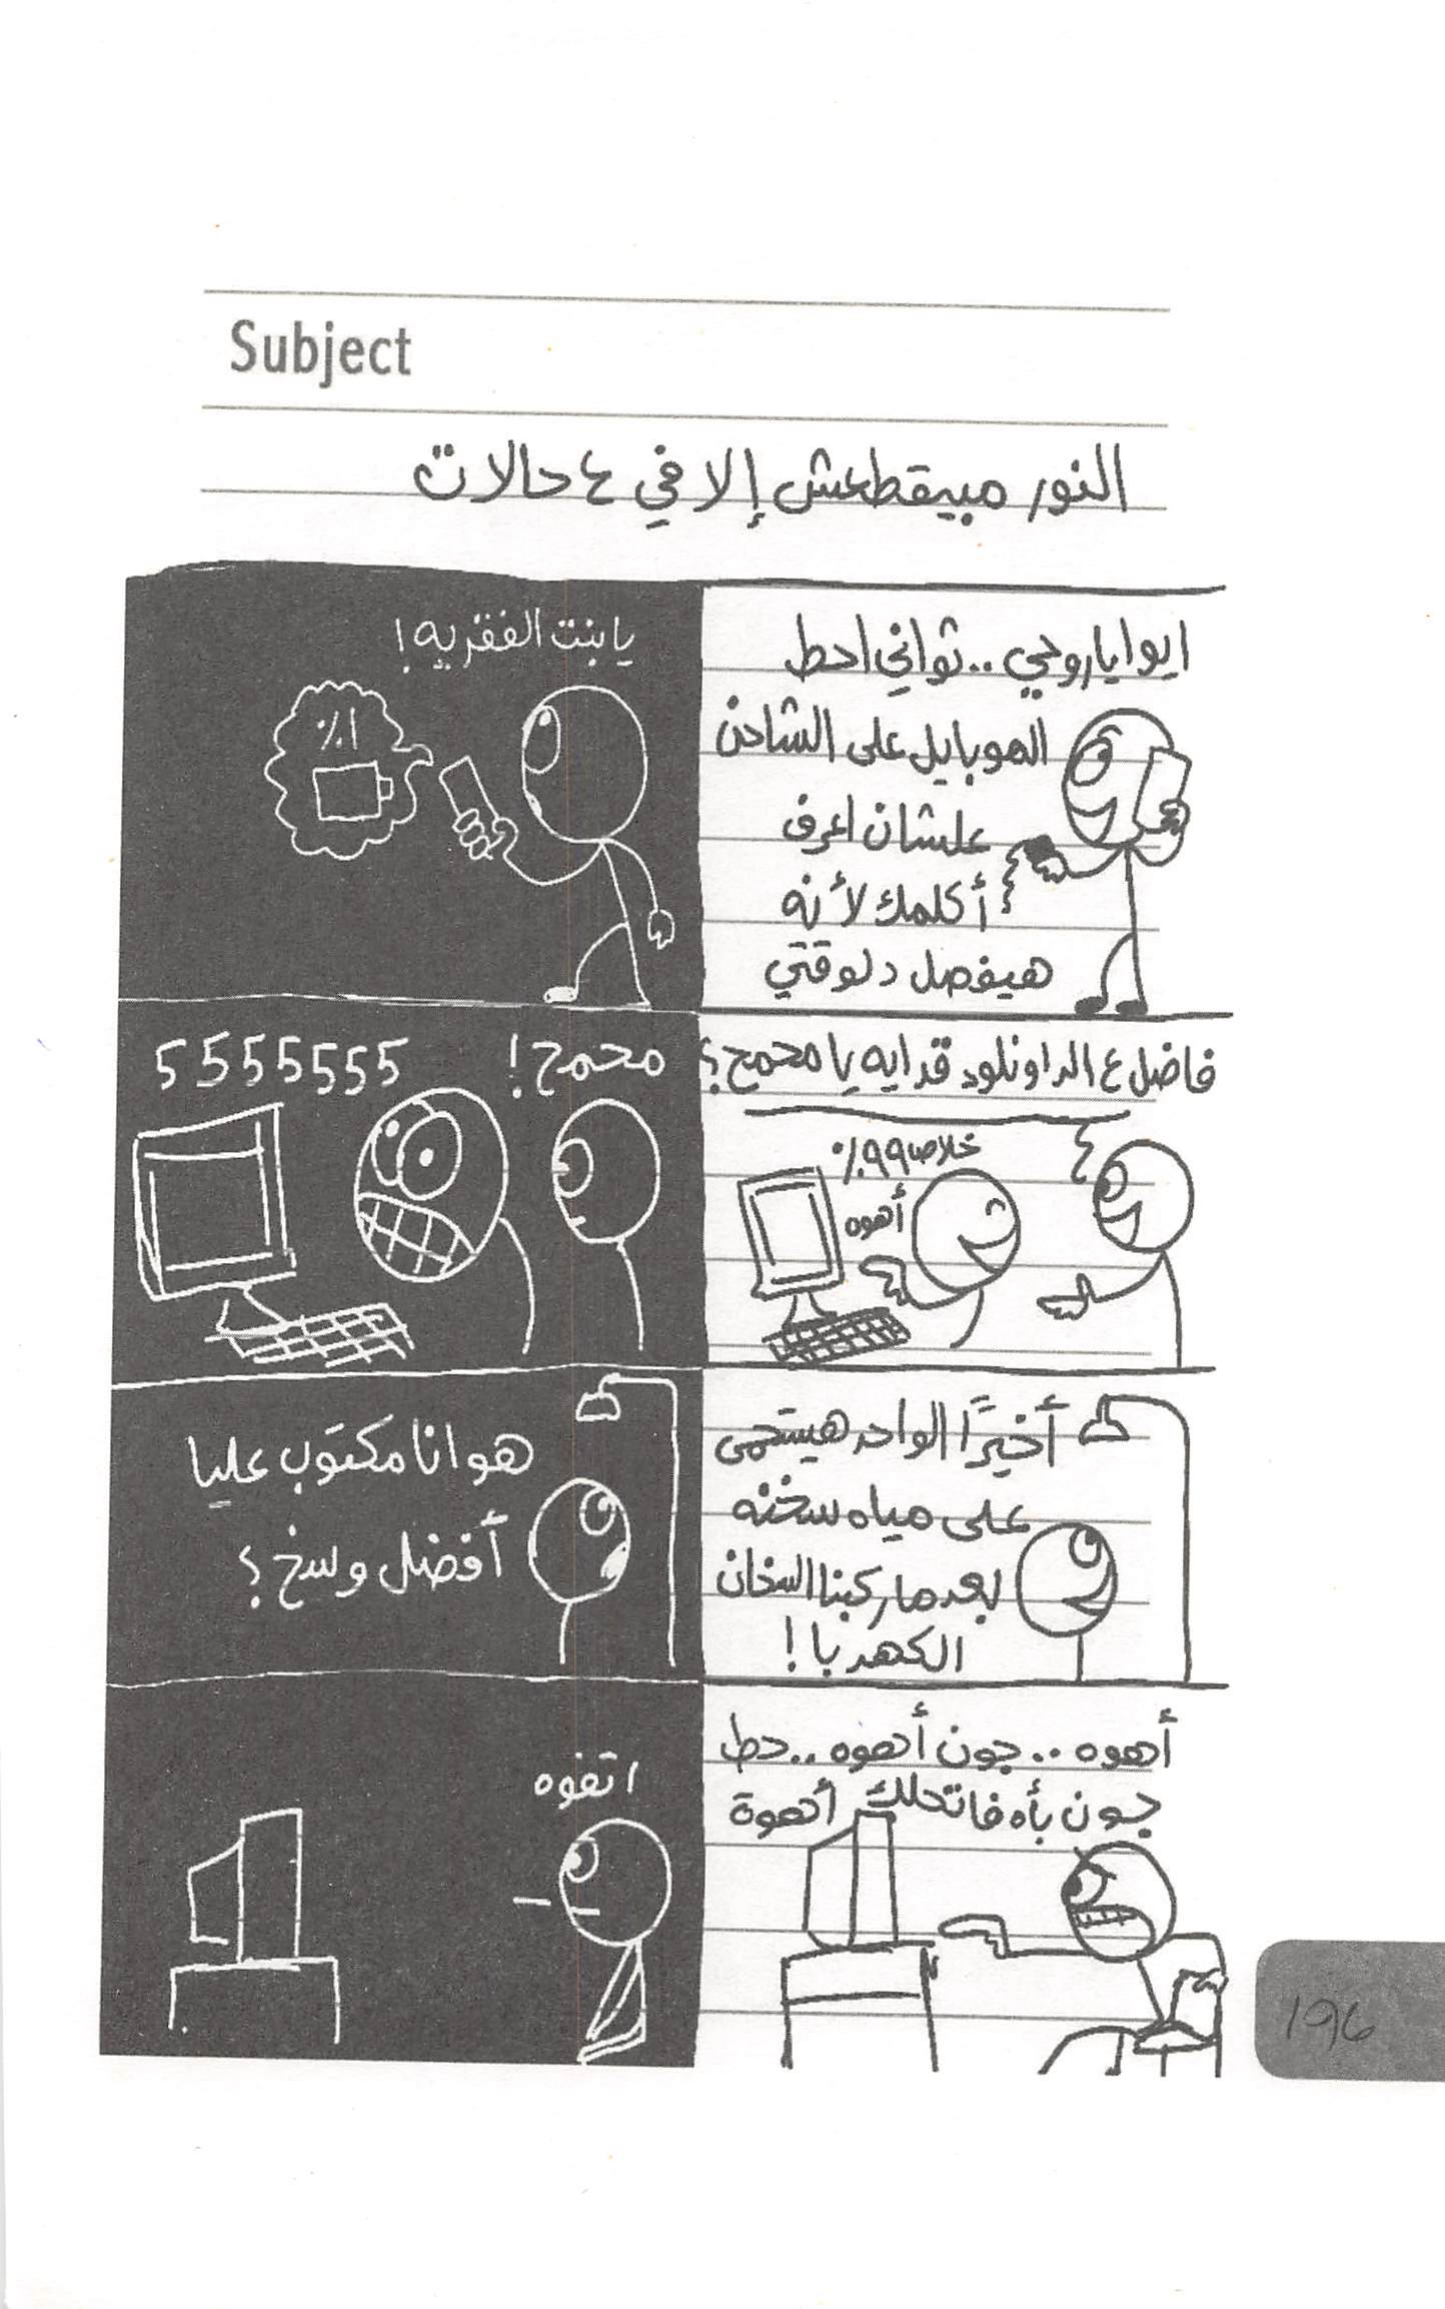 Subject
النور مبيقطعش إلا في ٤ حالات
ايوا ياروحي .. ثواني احط
الموبايل على الشاحن
علشان اعرف
أكلمك لأنه
هيفصل دلوقتي
يا بنت الفقريه !
١٪
فاضل ع الداونلود قد ايه يا محمح ؟
خلاص ٩٩٪
أهوه
محمح !
5555555
أخيرًا الواحد هيستحمى
على مياه سخنه
بعد ما ركبنا السخان
الكهربا !
هو انا مكتوب عليا
أفضل وسخ ؟
أهوه .. جون أهوه .. حط
جون بأه فاتحلك أهوة
اتفوه
١٩٦